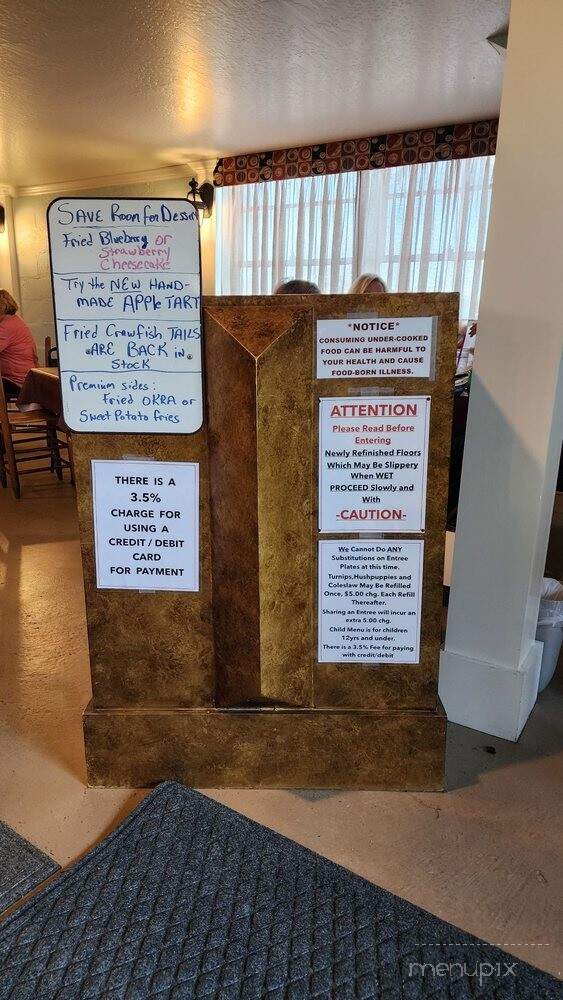 SAVE Room for Dessert
Fried Blueberry or
Strawberry
Cheesecake
Try the NEW HAND-
MADE APPLE TART
Fried Crawfish TAILS
ARE BACK in
Stock
Premium sides:
Fried OKRA or
Sweet Potato fries
THERE IS A
3.5%
CHARGE FOR
USING A
CREDIT / DEBIT
CARD
FOR PAYMENT
*NOTICE*
CONSUMING UNDER-COOKED
FOOD CAN BE HARMFUL TO
YOUR HEALTH AND CAUSE
FOOD-BORN ILLNESS.
ATTENTION
Please Read Before
Entering
Newly Refinished Floors
Which May Be Slippery
When WET
PROCEED Slowly and
With
-CAUTION-
We Cannot Do ANY
Substitutions on Entree
Plates at this time.
Turnips,Hushpuppies and
Coleslaw May Be Refilled
Once, $5.00 chg. Each Refill
Thereafter.
Sharing an Entree will incur an
extra 5.00 chg.
Child Menu is for children
12yrs and under.
There is a 3.5% Fee for paying
with credit/debit
menupix